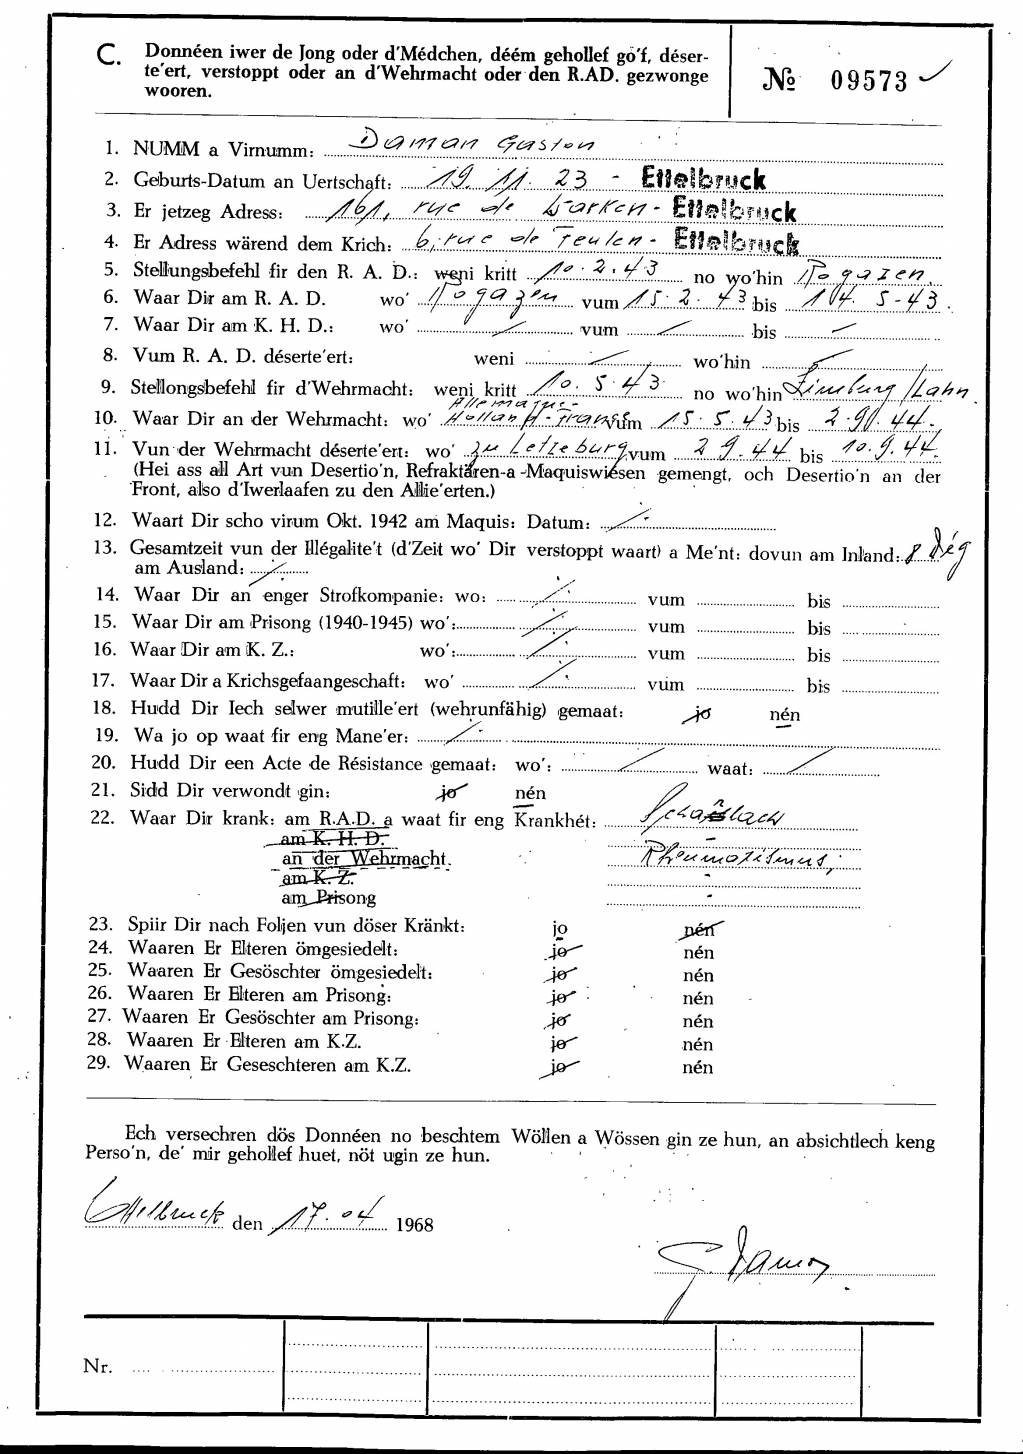 C. Donnéen iwer de Jong oder d'Médchen, déém gehollef go'f, déser-
te'ert, verstoppt oder an d'Wehrmacht oder den R.AD. gezwonge
wooren.
№ 09573
1. NUMM a Virnumm: Daman Gaston
2. Geburts-Datum an Uertschaft: 19. 11. 23 - Ettelbruck
3. Er jetzeg Adress: 161, rue de Warken - Ettelbruck
4. Er Adress wärend dem Krich: 6, rue de Feulen - Ettelbruck
5. Stellungsbefehl fir den R. A. D.: weni kritt 10. 2. 43 no wo'hin Rogazen.
6. Waar Dir am R. A. D. wo' Rogazen vum 15. 2. 43 bis 14. 5-43.
7. Waar Dir am K. H. D.: wo' / vum / bis /
8. Vum R. A. D. déserte'ert: weni / wo'hin /
9. Stellongsbefehl fir d'Wehrmacht: weni kritt 10. 5. 43 no wo'hin Limburg/Lahn
Allemagne-
10. Waar Dir an der Wehrmacht: wo' Holland - vum 15. 5. 43 bis 44.
11. Vun der Wehrmacht déserte'ert: wo' zu Letzeburg vum 2 9. 44 bis 10. 9. 44.
(Hei ass all Art vun Desertio'n, Refraktären-a -Maquiswiésen gemengt, och Desertio'n an der
Front, also d'Iwerlaafen zu den Allie'erten.)
12. Waart Dir scho virum Okt. 1942 am Maquis: Datum: /
13. Gesamtzeit vun der Illégalite't (d'Zeit wo' Dir verstoppt waart) a Me'nt: dovun am Inland: 8 Dég
am Ausland: /
14. Waar Dir an enger Strofkompanie: wo: / vum bis
15. Waar Dir am Prisong (1940-1945) wo': / vum bis
16. Waar Dir am K. Z.: wo': / vum bis
17. Waar Dir a Krichsgefaangeschaft: wo' / vum bis
18. Hudd Dir Iech selwer mutille'ert (wehrunfähig) gemaat: jo nén
19. Wa jo op waat fir eng Mane'er: /
20. Hudd Dir een Acte de Résistance gemaat: wo': / waat: /
21. Sidd Dir verwondt gin: jo nén
22. Waar Dir krank: am R.A.D. a waat fir eng Krankhét: Scharlach
am K. H. D.
an der Wehrmacht. Rheumatismus,
am K. Z.
am Prisong
23. Spiir Dir nach Foljen vun döser Kränkt: jo nén
24. Waaren Er Elteren ömgesiedelt: jo nén
25. Waaren Er Gesöschter ömgesiedelt: jo nén
26. Waaren Er Elteren am Prisong: jo nén
27. Waaren Er Gesöschter am Prisong: jo nén
28. Waaren Er Elteren am K.Z. jo nén
29. Waaren Er Geseschteren am K.Z. jo nén
Ech versechren dös Donnéen no beschtem Wöllen a Wössen gin ze hun, an absichtlech keng
Perso'n, de' mir gehollef huet, nöt ugin ze hun.
Ettelbruck den 17. 04 1968
G. Daman
Nr.